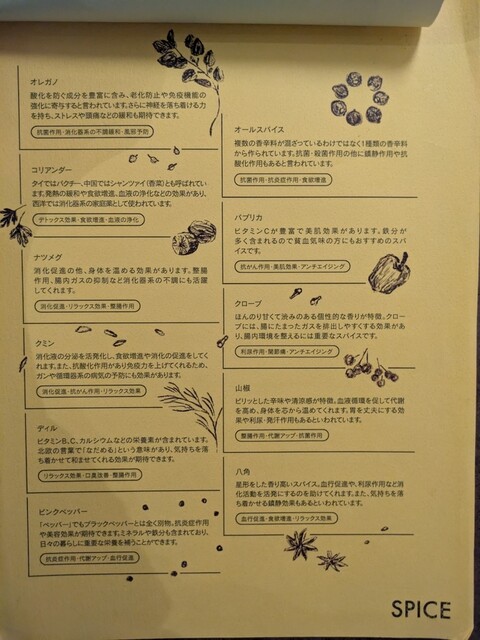 オレガノ
酸化を防ぐ成分を豊富に含み、老化防止や免疫機能の
強化に寄与すると言われています。さらに神経を落ち着ける力
を持ち、ストレスや頭痛などの緩和も期待できます。
抗菌作用・消化器系の不調緩和・風邪予防
コリアンダー
タイではパクチー、中国ではシャンツァイ(香菜)とも呼ばれてい
ます。発熱の緩和や食欲増進、血液の浄化などの効果があり、
西洋では消化器系の家庭薬として使われています。
デトックス効果・食欲増進・血液の浄化
ナツメグ
消化促進の他、身体を温める効果があります。整腸
作用、腸内ガスの抑制など消化器系の不調にも活躍
してくれます。
消化促進・リラックス効果・整腸作用
クミン
消化液の分泌を活発化し、食欲増進や消化の促進をしてく
れます。また、抗酸化作用があり免疫力を上げてくれるため、
ガンや循環器系の病気の予防にも効果があります。
消化促進・抗がん作用・リラックス効果
ディル
ビタミンB、C、カルシウムなどの栄養素が含まれています。
北欧の言葉で「なだめる」という意味があり、気持ちを落
ち着かせて和ませてくれる効果が期待できます。
リラックス効果・口臭改善・整腸作用
ピンクペッパー
「ペッパー」でもブラックペッパーとは全く別物。抗炎症作用
や美容効果が期待できます。ミネラルや鉄分も含まれており、
日々の暮らしに重要な栄養を補うことができます。
抗炎症作用・代謝アップ・血行促進
オールスパイス
複数の香辛料が混ざっているわけではなく1種類の香辛料
から作られています。抗菌・殺菌作用の他に鎮静作用や抗
酸化作用もあると言われています。
抗菌作用・抗炎症作用・食欲増進
パプリカ
ビタミンCが豊富で美肌効果があります。鉄分が
多く含まれるので貧血気味の方にもおすすめのスパ
イスです。
抗がん作用・美肌効果・アンチエイジング
クローブ
ほんのり甘くて渋みのある個性的な香りが特徴。クロー
ブには、腸にたまったガスを排出しやすくする効果があ
り、腸内環境を整えるには重要なスパイスです。
利尿作用・関節痛・アンチエイジング
山椒
ピリッとした辛味や清涼感が特徴。血液循環を促して代謝
を高め、身体を芯から温めてくれます。胃を丈夫にする効
果や利尿・発汗作用もあるといわれています。
整腸作用・代謝アップ・抗菌作用
八角
星形をした香り高いスパイス。血行促進や、利尿作用など消
化活動を活発にするのを助けてくれます。また、気持ちを落
ち着かせる鎮静効果もあるといわれています。
血行促進・食欲増進・リラックス効果
SPICE